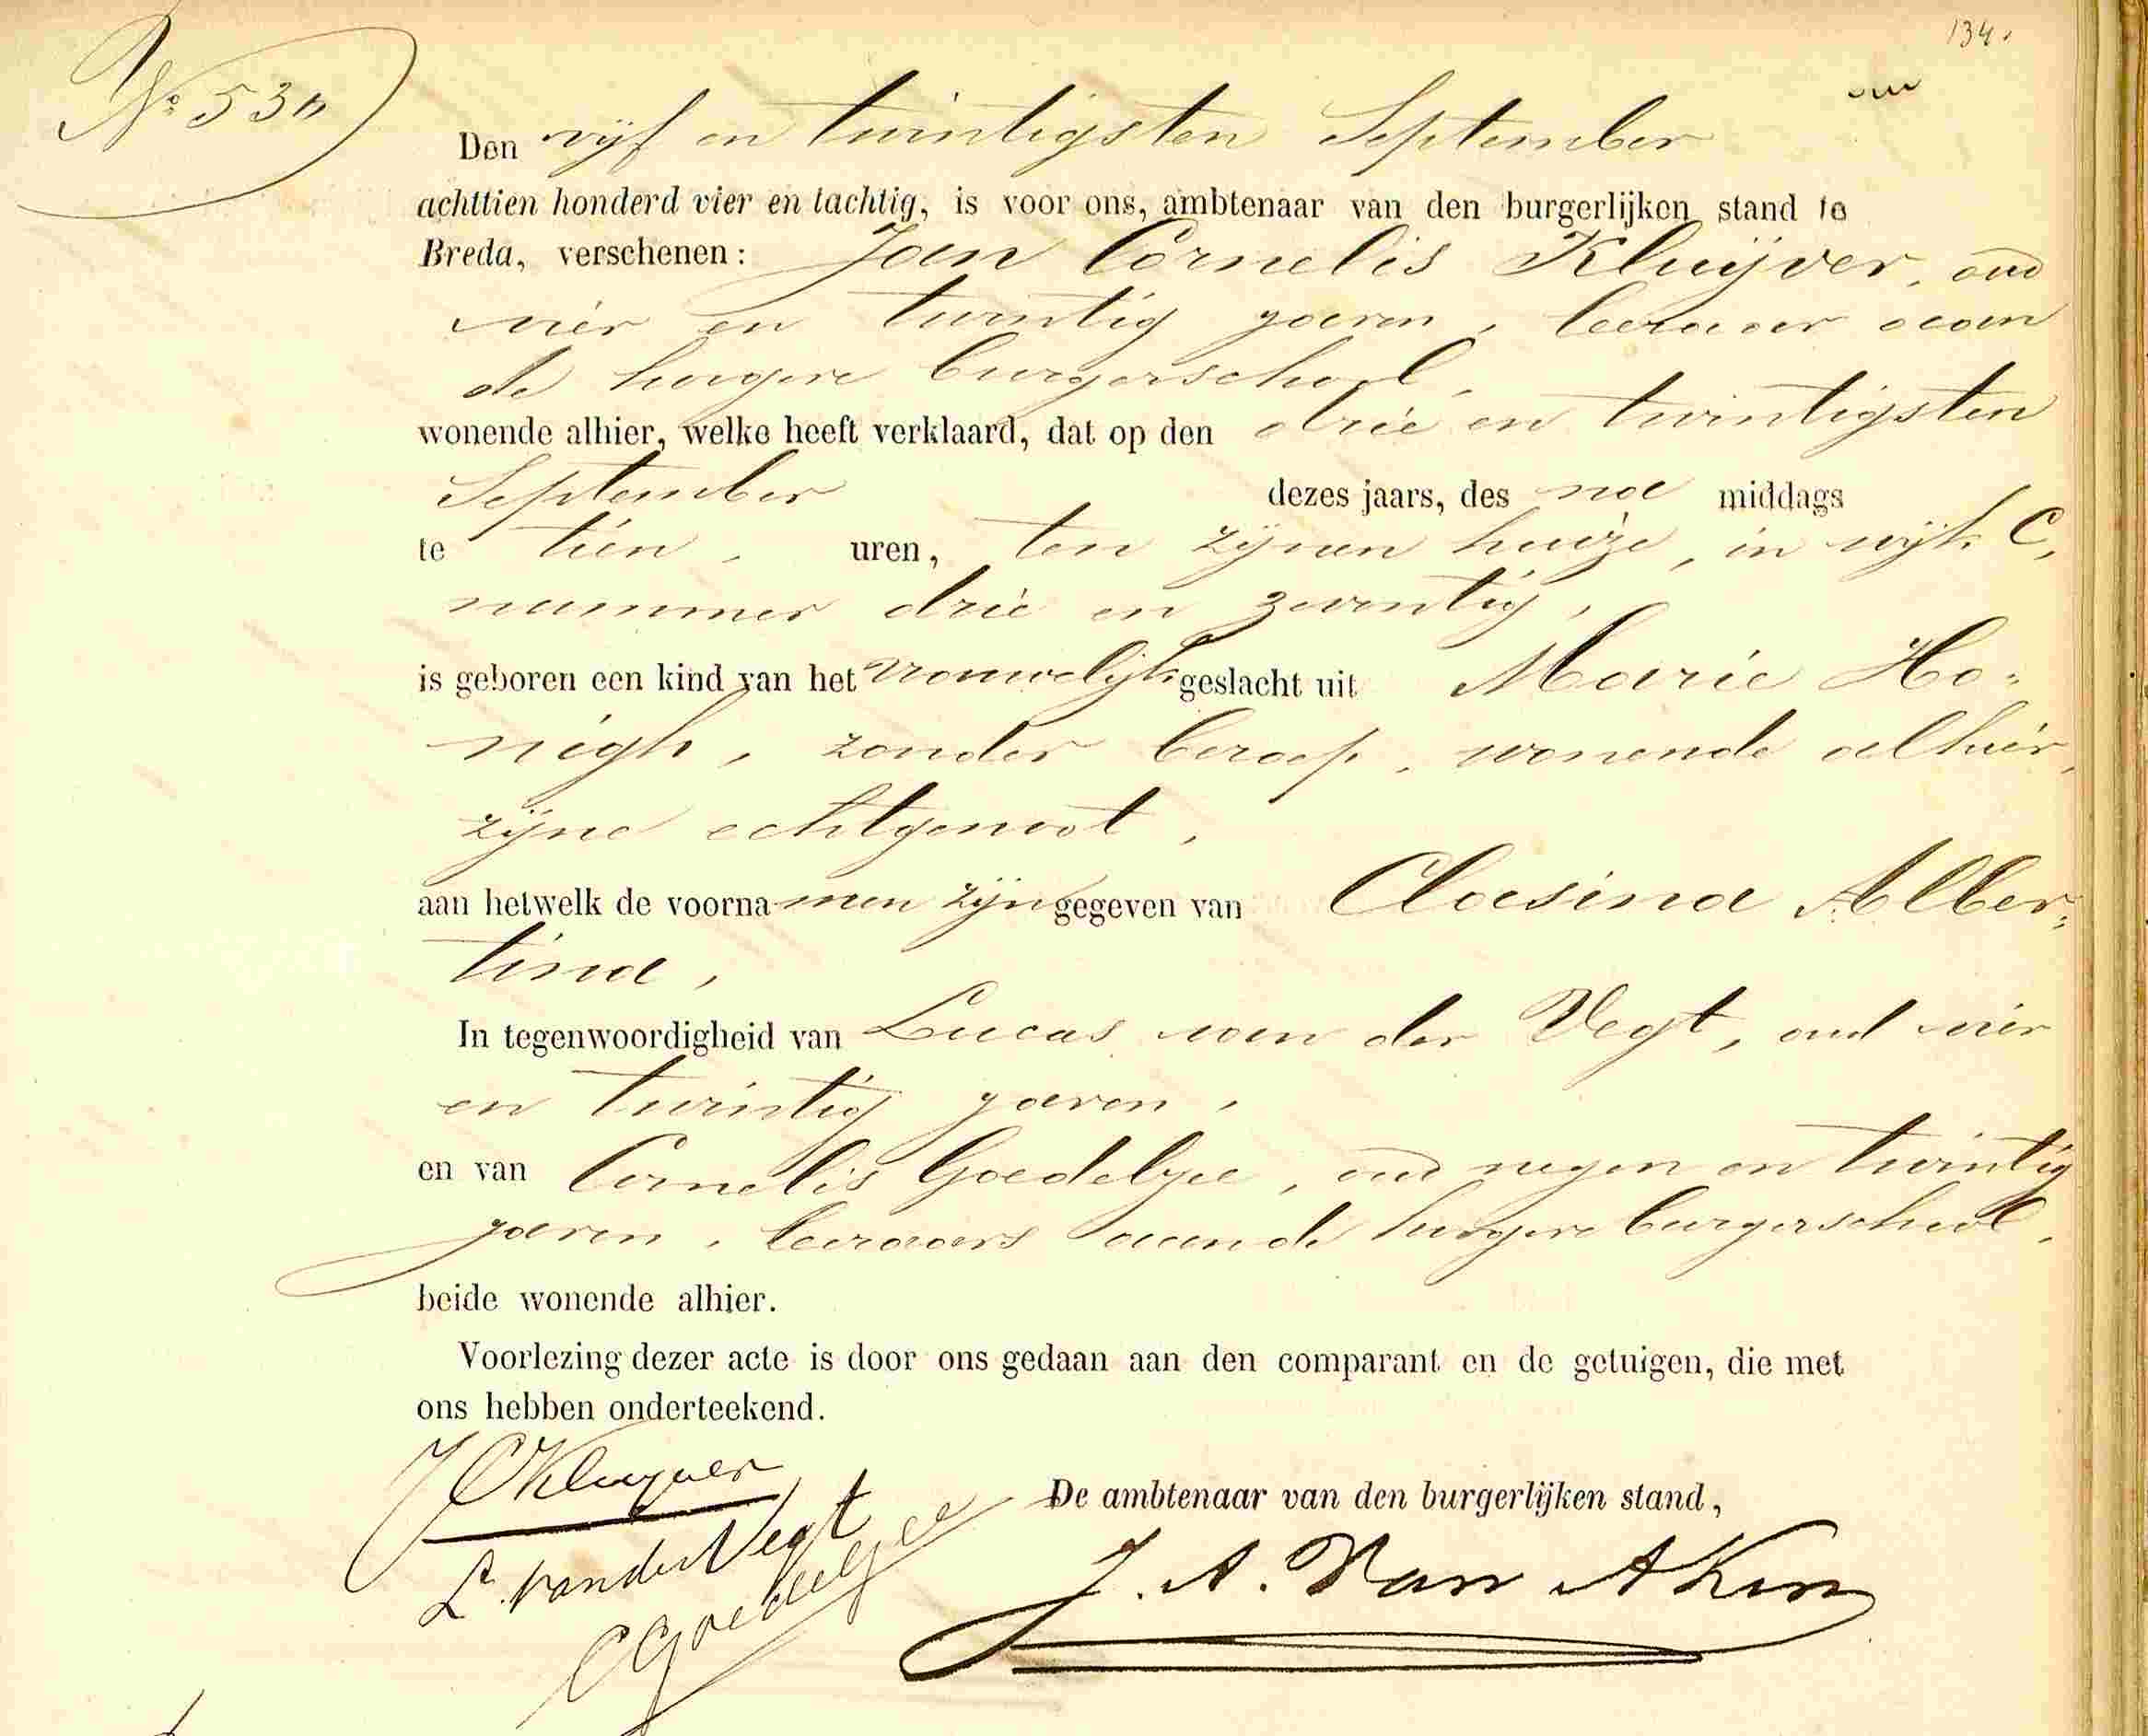 134.
Nº 530
Den vijf en twintigsten September
achttien honderd vier en tachtig, is voor ons, ambtenaar van den burgerlijken stand te
Breda, verschenen: Jan Cornelis Kluijver, oud
vier en twintig jaren, leeraar aan
de hoogere burgerschool,
wonende alhier, welke heeft verklaard, dat op den drie en twintigsten
September dezes jaars, des na middags
te tien, uren, ten zijnen huize, in wijk C,
nummer drie en zeventig,
is geboren een kind van het vrouwelijk geslacht uit Marie Ho-
nigh, zonder beroep, wonende alhier,
zijne echtgenoot,
aan hetwelk de voornamen zijn gegeven van Clasina Alber-
tina,
In tegenwoordigheid van Lucas van der Vegt, oud vier
en twintig jaren,
en van Cornelis Goedelzee, oud negen en twintig
jaren, leeraars aan de hoogere burgerschool,
beide wonende alhier.
Voorlezing dezer acte is door ons gedaan aan den comparant en de getuigen, die met
ons hebben onderteekend.
JCKluyver
De ambtenaar van den burgerlijken stand,
L. van der Vegt
CGoedelzee
J. A. Van Aken